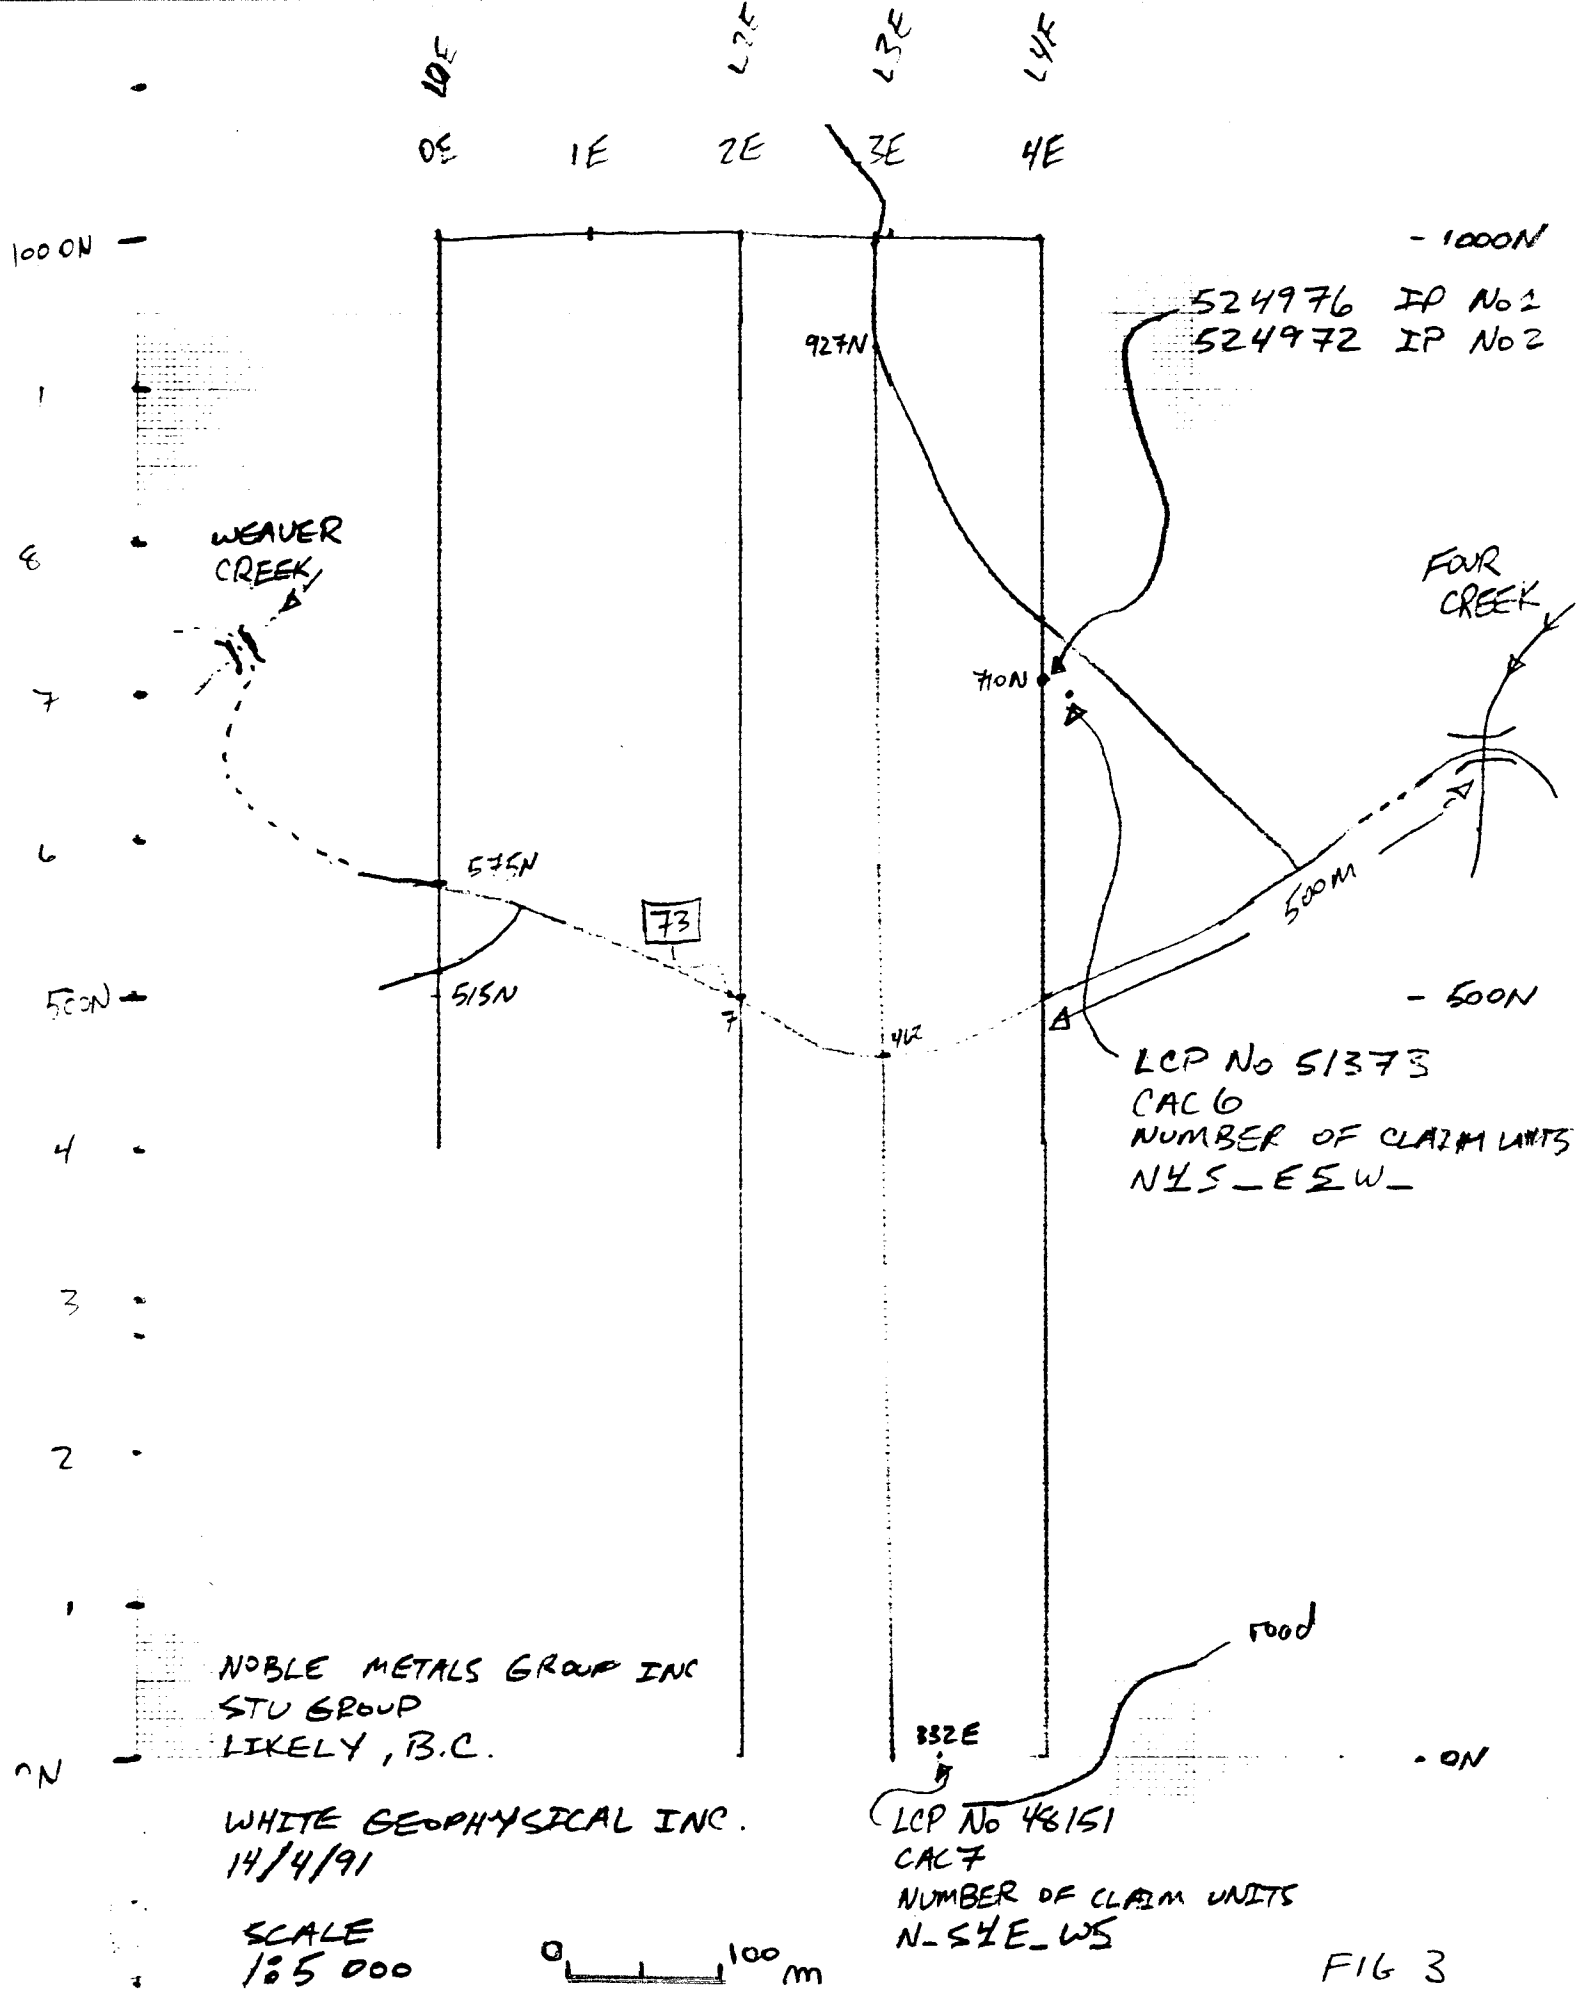 L0E
L2E
L3E
L4E
0E 1E 2E 3E 4E
1000N
- 1000N
524976 IP No 1
524972 IP No 2
927N
1
8
WEAVER
CREEK
FOUR
CREEK
7
710N
6
575N
500M
73
500N
515N
7
- 500N
LCP No 51373
CAC 6
NUMBER OF CLAIM UNITS
N4S_E5W_
4
3
2
1
road
NOBLE METALS GROUP INC
STU GROUP
LIKELY, B.C.
332E
0N
- 0N
WHITE GEOPHYSICAL INC.
14/4/91
LCP No 48151
CAC 7
NUMBER OF CLAIM UNITS
N_S4E_W5
SCALE
1:5 000
0 100 m
FIG 3